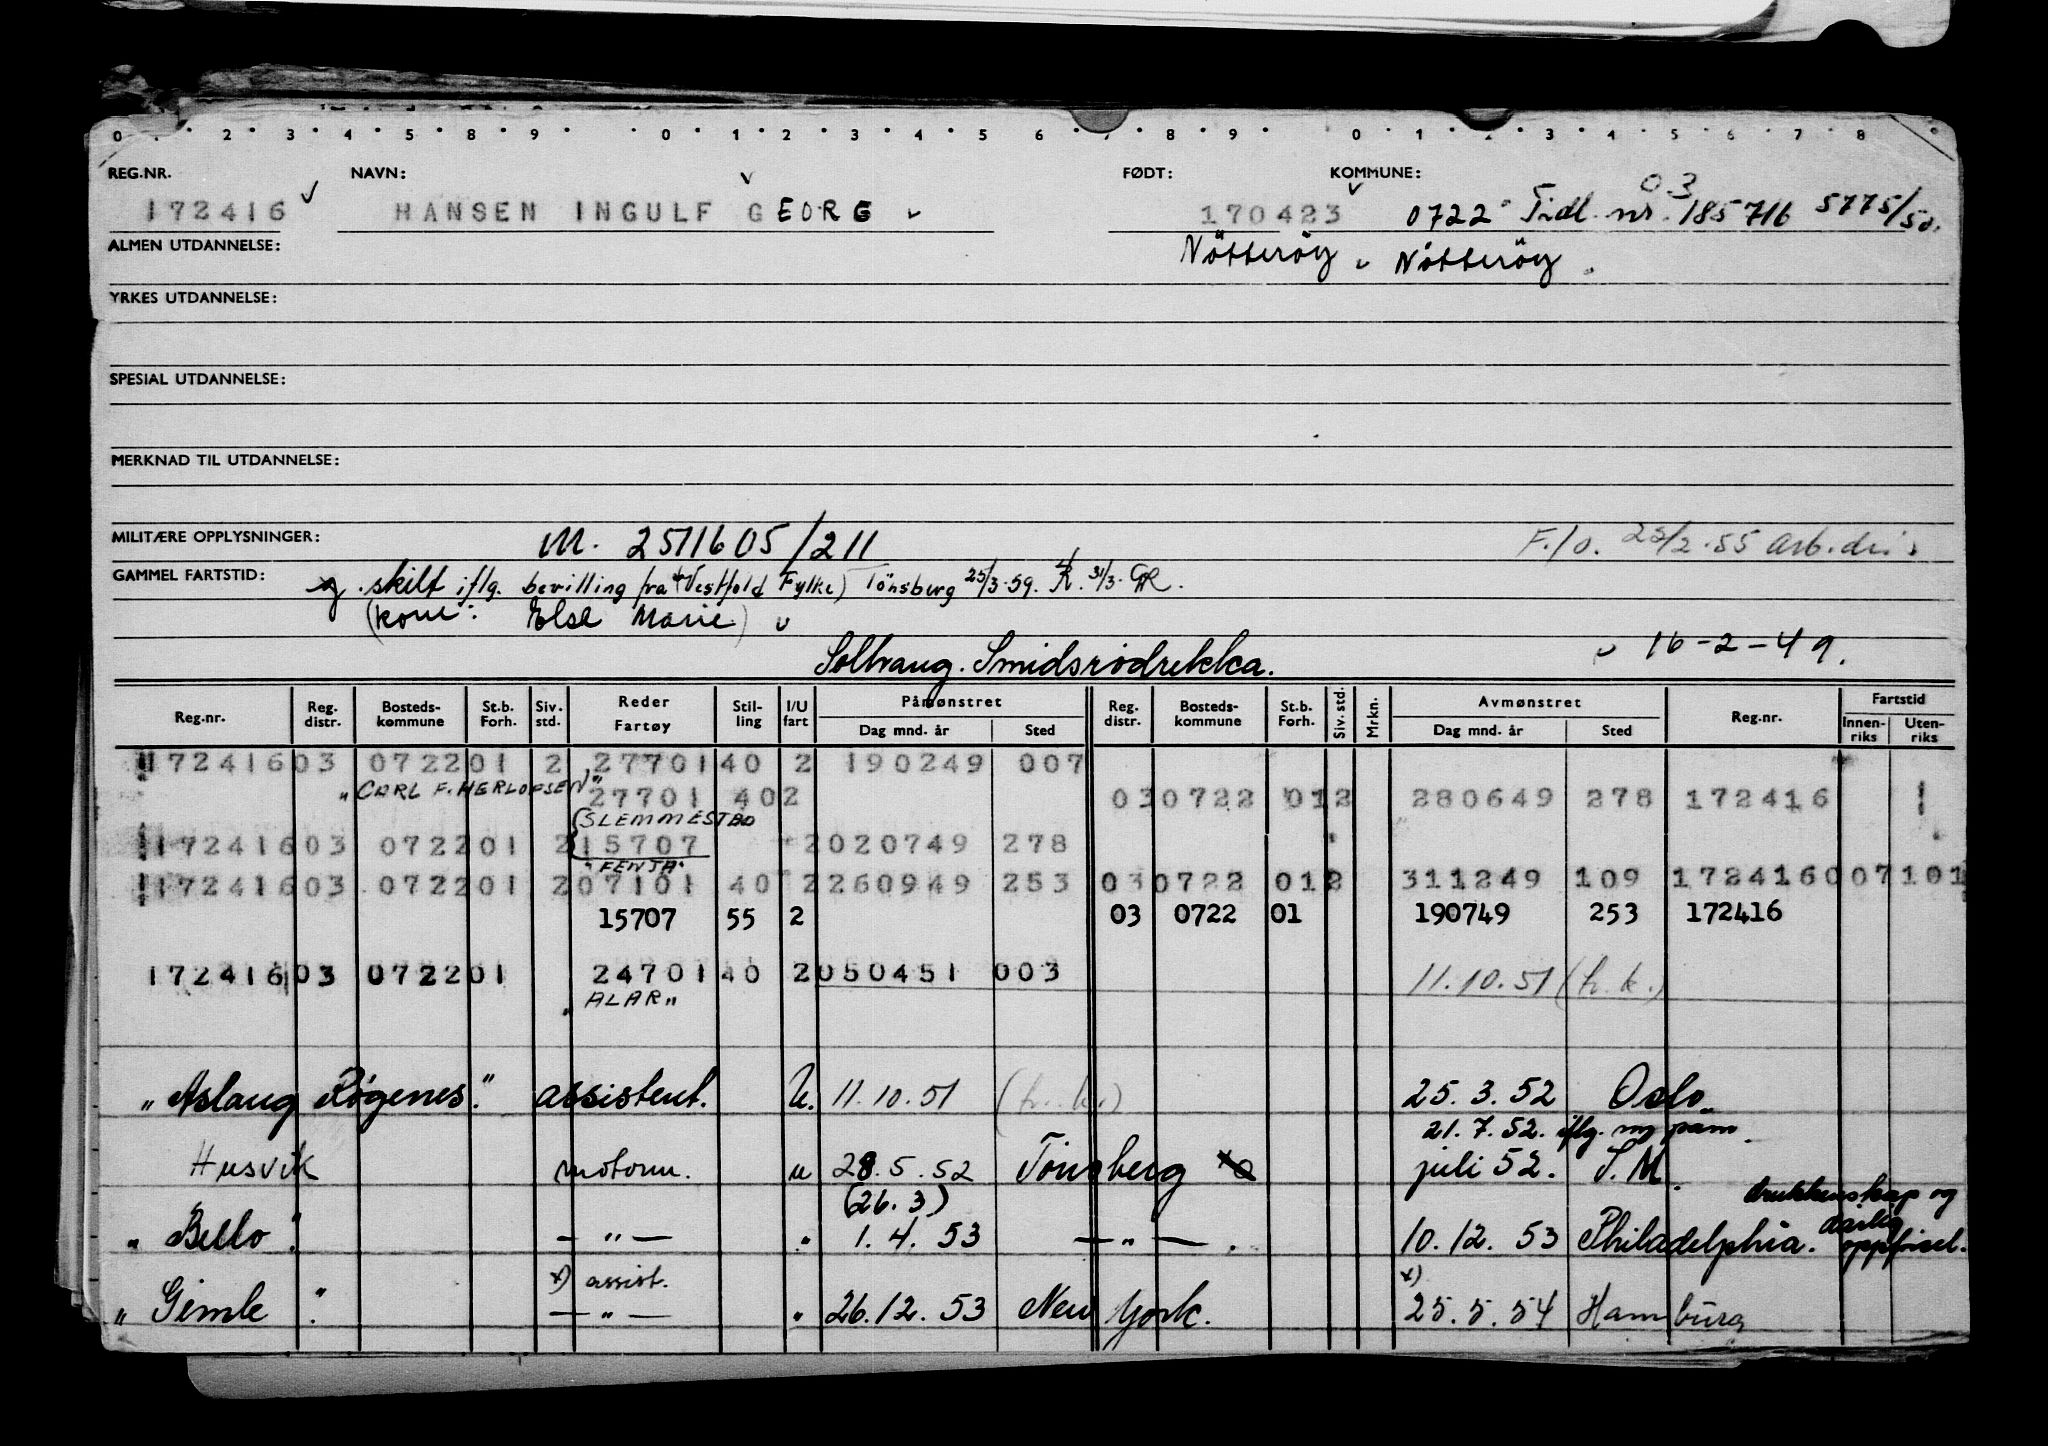 0 . . 2 . 3 . 4 . 5 . 8 . 9 . . 0 . 1 . 2 . 3 . 4 . 5 6 . 8 . 9 . 0 . 1 . 2 . 3 . 4 . 5 . 6 . 7 . 8
REG.NR. NAVN: FØDT: KOMMUNE:
172416 HANSEN INGULF GEORG 170423 0722 Tidl. nr. 03 185716 5775/50.
ALMEN UTDANNELSE: Nötteröy Nötteröy
YRKES UTDANNELSE:
SPESIAL UTDANNELSE:
MERKNAD TIL UTDANNELSE:
MILITÆRE OPPLYSNINGER: M. 2511605/211 F./o. 23/2.55 arb.dir.
GAMMEL FARTSTID: g. skilt iflg. bevilling fra (Vestfold Fylke) Tönsberg 25/3-59. K. 31/3.
(kone: Else Marie)
Solvang. Smidsrödrekka. 16-2-49.
Reg.nr. Reg. distr. Bosteds-kommune St.b. Forh. Siv. std. Reder Fartøy Stil-ling I/U fart Påmønstret Dag mnd. år Sted Reg. distr. Bosteds-kommune St.b. Forh. Siv. std. Mrkn. Avmønstret Dag mnd. år Sted Reg.nr. Fartstid Innen-riks Uten-riks
172416 03 0722 01 2 27701 40 2 190249 007
"CARL F. HERLOFSEN"
27701 40 2 03 0722 01 2 280649 278 172416 1
(SLEMMESTAD
172416 03 0722 01 2 15707 2 020749 278
"FENJA"
172416 03 0722 01 2 07101 40 2 260949 253 03 0722 01 2 311249 109 172416 0007 101
15707 55 2 03 0722 01 190749 253 172416
172416 03 0722 01 24701 40 2 050451 003 11.10.51 (h.k.)
"ALAR"
"Aslaug Røgenes." assistent. U. 11.10.51 (h.k.) 25.3.52 Oslo
21.7.52. iflg. ny påm.
Husvik motorm. u 28.5.52 Tönsberg juli 52. S.M.
(26.3) drukkenskap og
"Bello". — " — " 1.4.53 — " — . 10.12.53 Philadelphia. dårlig
oppførsel.
x) assist. x)
"Gimle" — " — " 26.12.53 New York. 25.5.54 Hamburg